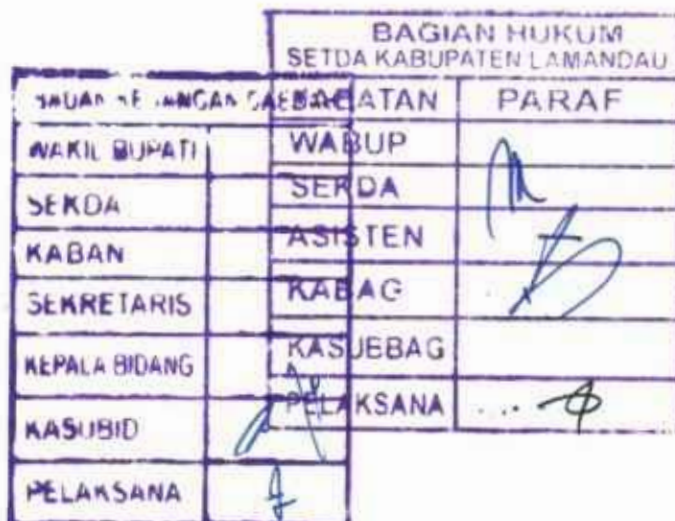 BAGIAN HUKUM
SETDA KABUPATEN LAMANDAU
PARAF
WABUP
SEKDA
ASISTEN
KABAG
KASUBBAG
PELAKSANA
WAKIL BUPATI
SEKDA
KABAN
SEKRETARIS
KEPALA BIDANG
KASUBID
PELAKSANA